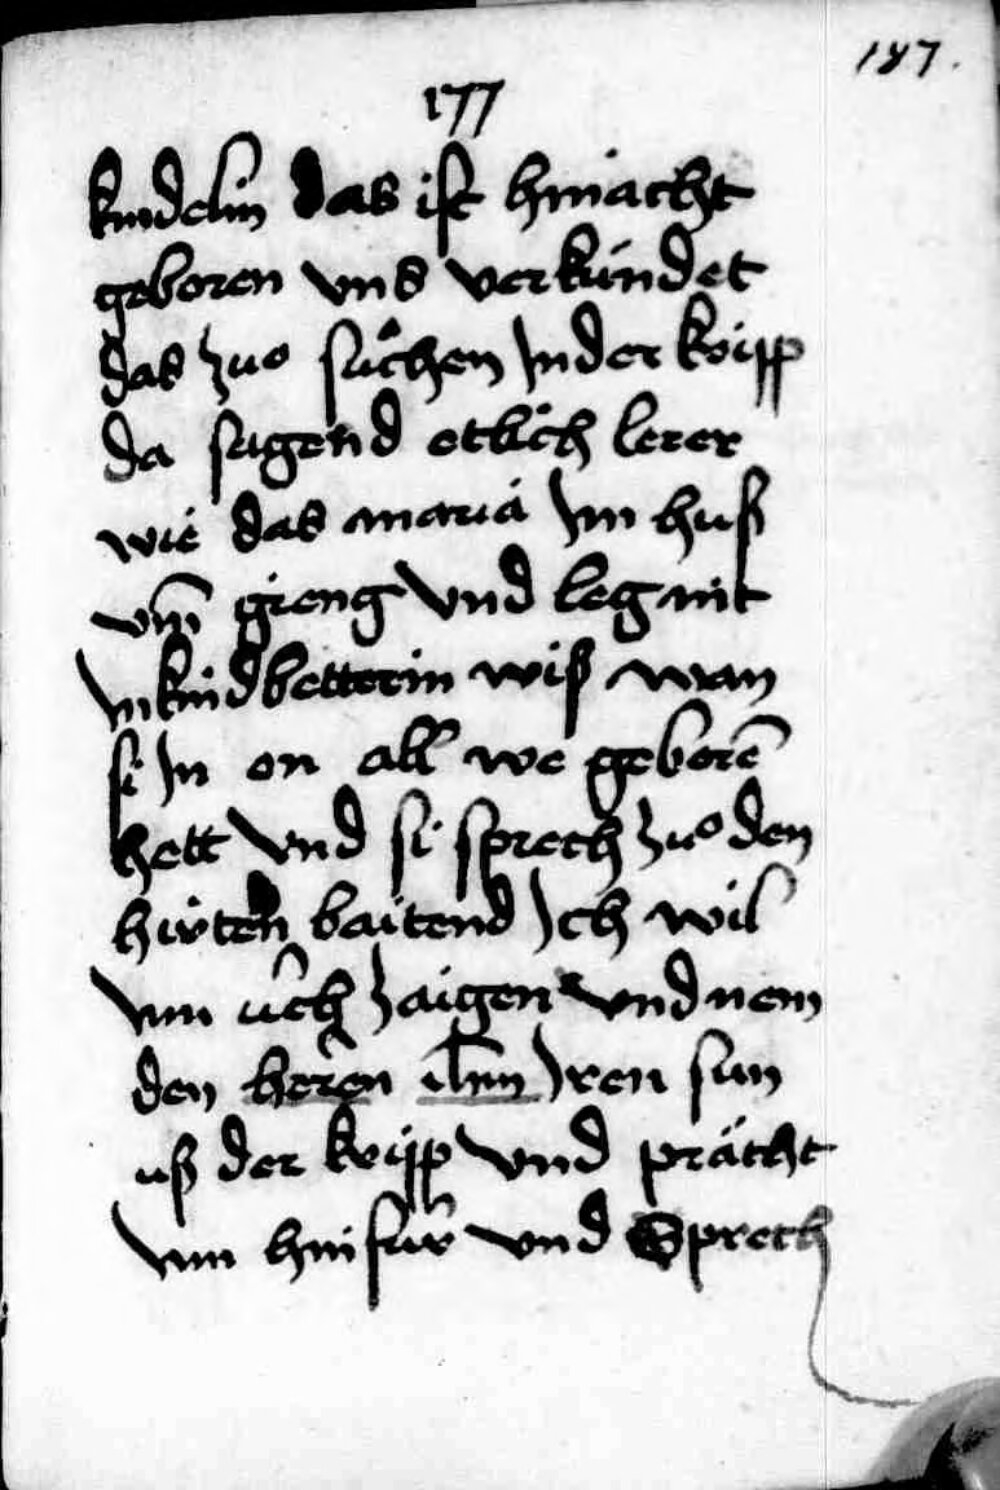 187.
177
kindelin das ist hinächt
geboren vns verkündet
das zuo süchen Jn der kripp
da sagend etlich lerer
wie das maria Jm huß
vm̄ gieng vnd leg nit
Jn kindbetterin wiß wan
si Jn on all we geborē
hett vnd si sprech zuo den
hirten baitend Jch wil
Jnn üch zaigen vnd nem
den heren ihm̄ Jren sun
uß der kripp vnd prächt
Jnn hin für vnd Sprech